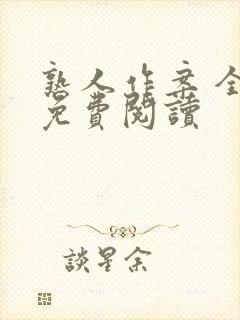 熟人作案全
免費閱讀
談星余